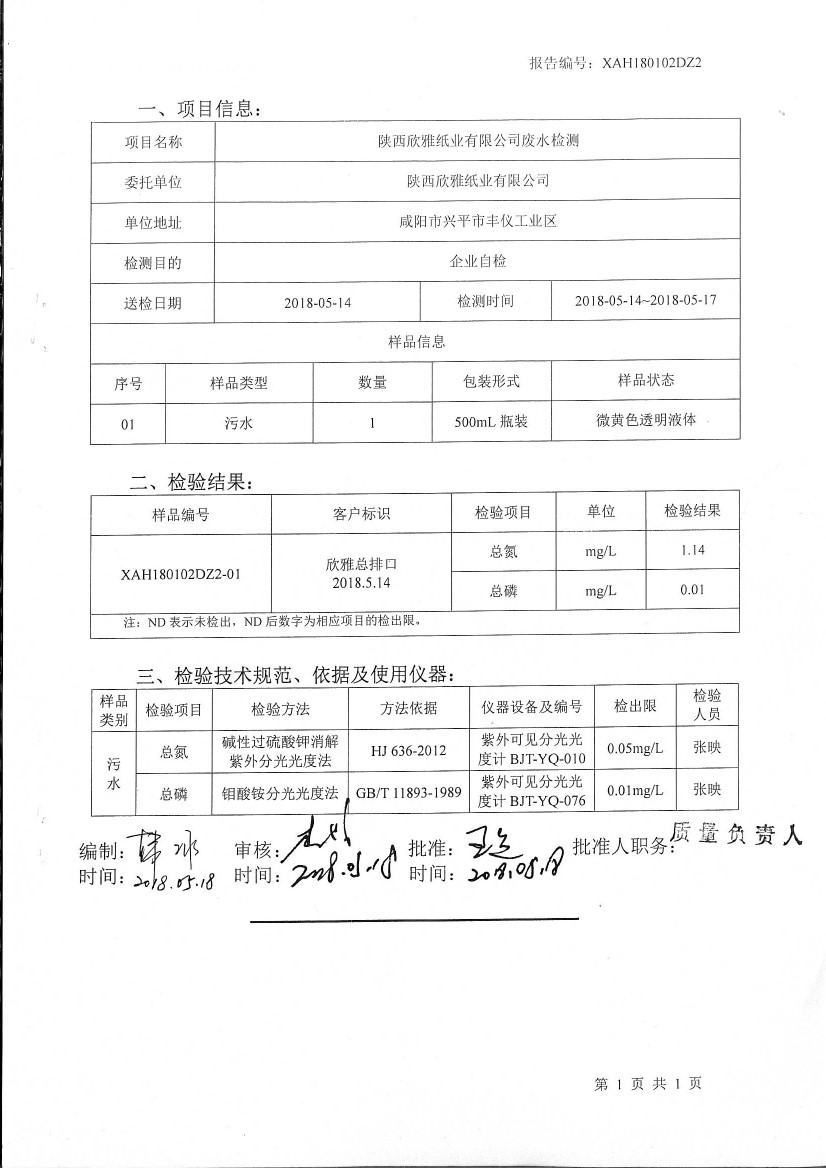 报告编号：XAH180102DZ2
一、项目信息：
项目名称 陕西欣雅纸业有限公司废水检测
委托单位 陕西欣雅纸业有限公司
单位地址 咸阳市兴平市丰仪工业区
检测目的 企业自检
送检日期 2018-05-14 检测时间 2018-05-14~2018-05-17
样品信息
序号 样品类型 数量 包装形式 样品状态
01 污水 1 500mL 瓶装 微黄色透明液体
二、检验结果：
样品编号 客户标识 检验项目 单位 检验结果
XAH180102DZ2-01 欣雅总排口
2018.5.14
总氮 mg/L 1.14
总磷 mg/L 0.01
注：ND 表示未检出，ND 后数字为相应项目的检出限。
三、检验技术规范、依据及使用仪器：
样品
类别
检验项目 检验方法 方法依据 仪器设备及编号 检出限 检验
人员
污
水
总氮 碱性过硫酸钾消解
紫外分光光度法
HJ 636-2012 紫外可见分光光
度计 BJT-YQ-010
0.05mg/L 张映
总磷 钼酸铵分光光度法 GB/T 11893-1989 紫外可见分光光
度计 BJT-YQ-076
0.01mg/L 张映
编制： 审核： 批准： 批准人职务：质量负责人
时间：2018.05.18 时间：2018.05.18 时间：2018.05.18
第 1 页 共 1 页